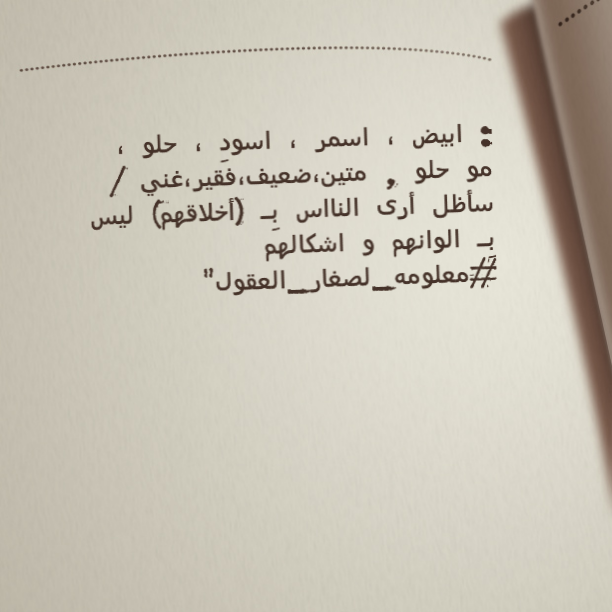 : ابيض ، اسمر ، اسودِ ، حلو ،
مو حلو , متين،ضعيف،فقير،غني /
سأظل أرى النااس بِـ (أخلاقهم) ليس
بِـ الوانهم و اشكالهم
#معلومه_لصغار_العقول"